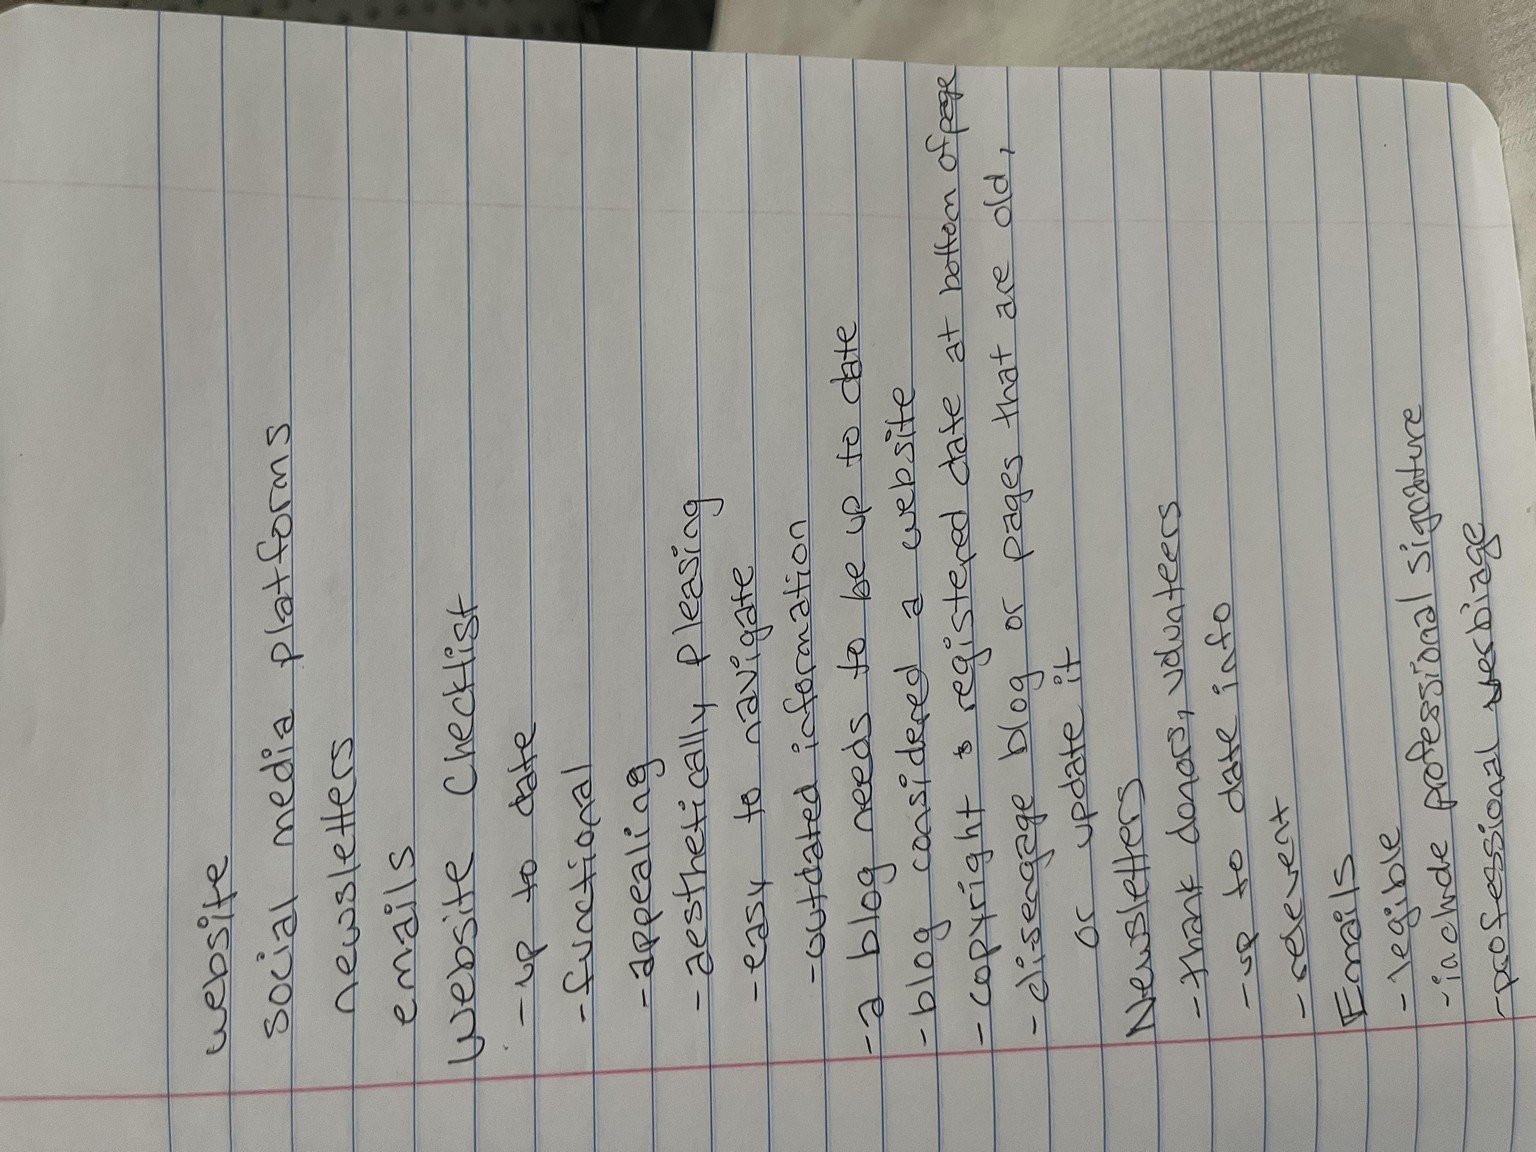 website
social media platforms
newsletters
emails
Website Checklist
- up to date
- functional
- appealing
- aesthetically pleasing
- easy to navigate
- outdated information
- a blog needs to be up to date
- blog considered a website
- copyright & registered date at bottom of page
- disengage blog or pages that are old,
or update it
Newsletters
- thank donors, volunteers
- up to date info
- relevent
Emails
- legible
- include professional signature
- professional verbiage